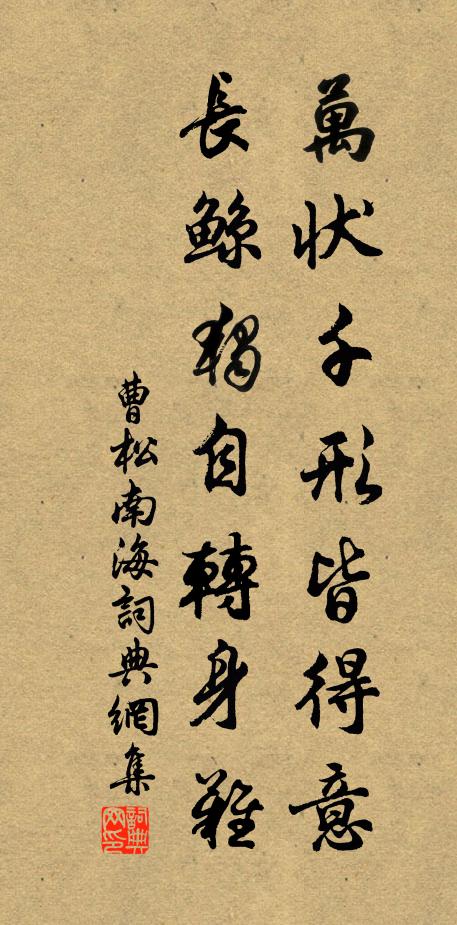 萬状千形皆得意
長鲸獨自轉身難
曹松南海詞典網集
詞典網印